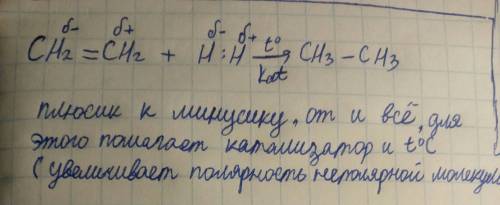 δ- δ+ δ- δ+
CH₂ = CH₂ + H : H t° kat → CH₃ – CH₃
плюсик к минусику, от и всё, для
этого помагает катализатор и t°C
(увеличивает полярность неполярной молекулы